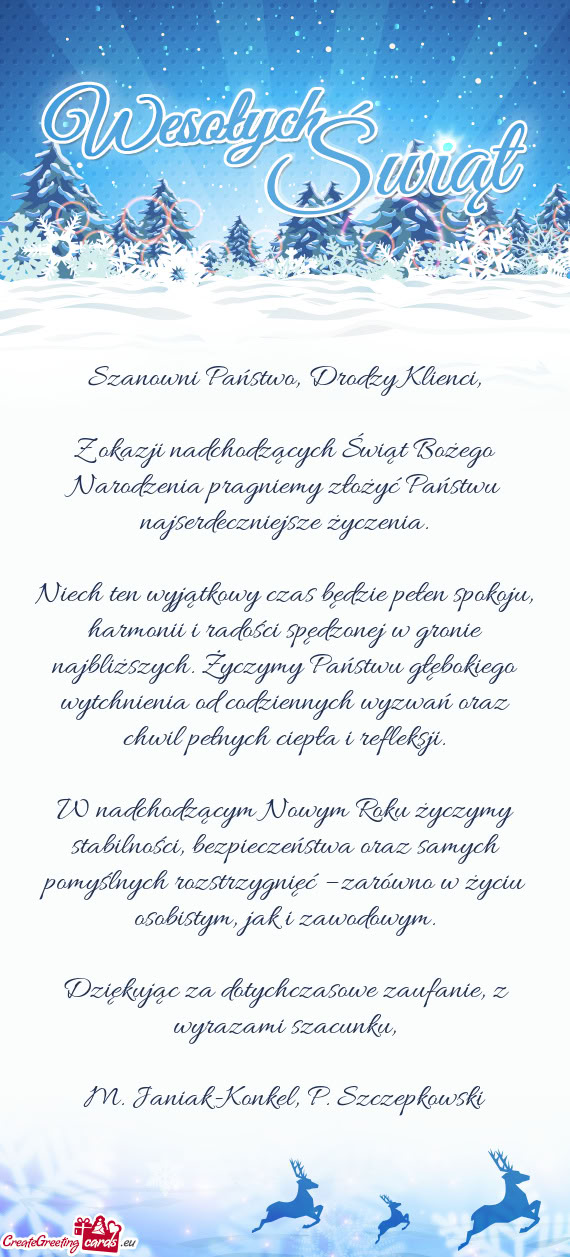 Wesołych
Świąt
Szanowni Państwo, Drodzy Klienci,
Z okazji nadchodzących Świąt Bożego
Narodzenia pragniemy złożyć Państwu
najserdeczniejsze życzenia.
Niech ten wyjątkowy czas będzie pełen spokoju,
harmonii i radości spędzonej w gronie
najbliższych. Życzymy Państwu głębokiego
wytchnienia od codziennych wyzwań oraz
chwil pełnych ciepła i refleksji.
W nadchodzącym Nowym Roku życzymy
stabilności, bezpieczeństwa oraz samych
pomyślnych rozstrzygnięć – zarówno w życiu
osobistym, jak i zawodowym.
Dziękując za dotychczasowe zaufanie, z
wyrazami szacunku,
M. Janiak-Konkel, P. Szczepkowski
CreateGreeting cards .eu